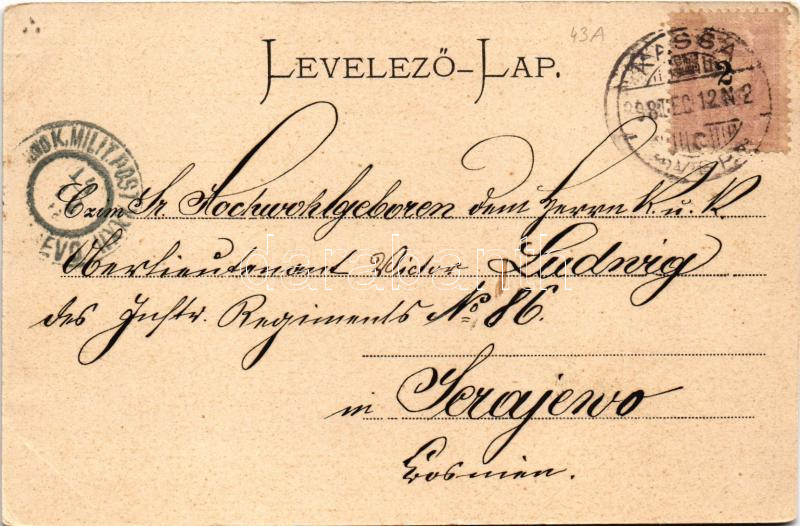 43A
LEVELEZŐ-LAP.
KASSA
2
98 DEC. 12 N 2
K. MILIT. POST
Sr. Hochwohlgeboren dem Herrn K. u. K.
Oberlieutenant Victor Ludwig
des Inftr. Regiments No. 86.
in Serajewo
Bosnien.
darabanth